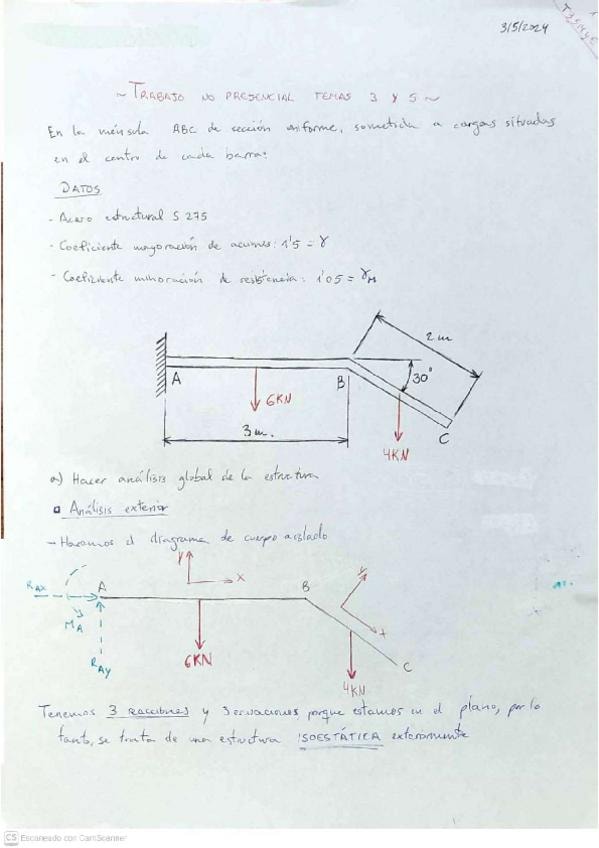 3/5/2024
~ TRABAJO NO PRESENCIAL TEMAS 3 Y 5 ~
En la ménsula ABC de sección uniforme, sometida a cargas situadas
en el centro de cada barra:
DATOS
- Acero estructural S 275
- Coeficiente mayoración de acciones: 1'5 = γ
- Coeficiente minoración de resistencia: 1'05 = γM
2 m
A
B
30°
6KN
3 m.
4KN
C
a) Hacer análisis global de la estructura
Análisis exterior
- Hacemos el diagrama de cuerpo aislado
RAX
A
y
x
B
y
x
MA
RAY
6KN
4KN
C
Tenemos 3 reacciones y 3 ecuaciones porque estamos en el plano, por lo
tanto, se trata de una estructura ISOESTÁTICA exteriormente
CS Escaneado con CamScanner